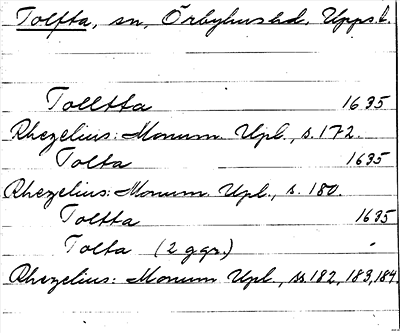 Tolfta, sn, Örbyhus hd, Upps. l.
Tolltta 1635
Rhezelius: Monum. Upl., s. 172.
Tolta 1635
Rhezelius: Monum. Upl., s. 180.
Toltta 1635
Tolta (2 ggr.) "
Rhezelius: Monum. Upl., ss. 182, 183, 184.